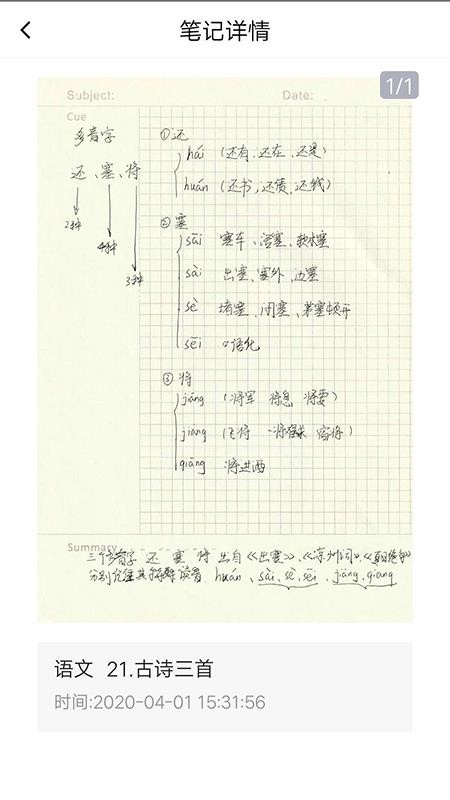 笔记详情
1/1
Subject:
Date:
Cue
多音字
还、塞、将
2种
4种
3种
①还
hái (还有、还在、还是)
huán (还书, 还债、还钱)
②塞
sāi 塞车、活塞、软木塞
sài 出塞、塞外、边塞
sè 堵塞、闭塞、茅塞顿开
sēi 口语化
③将
jiāng (将军 将息 将要)
jiàng (飞将 一将难求
qiāng 将进酒
Summary
三个多音字 还 塞 将 出自《出塞》、《凉州词》、《夏日绝句》
分别 读音 huán、sài、sè、sēi、jiāng、qiang
语文 21.古诗三首
时间:2020-04-01 15:31:56